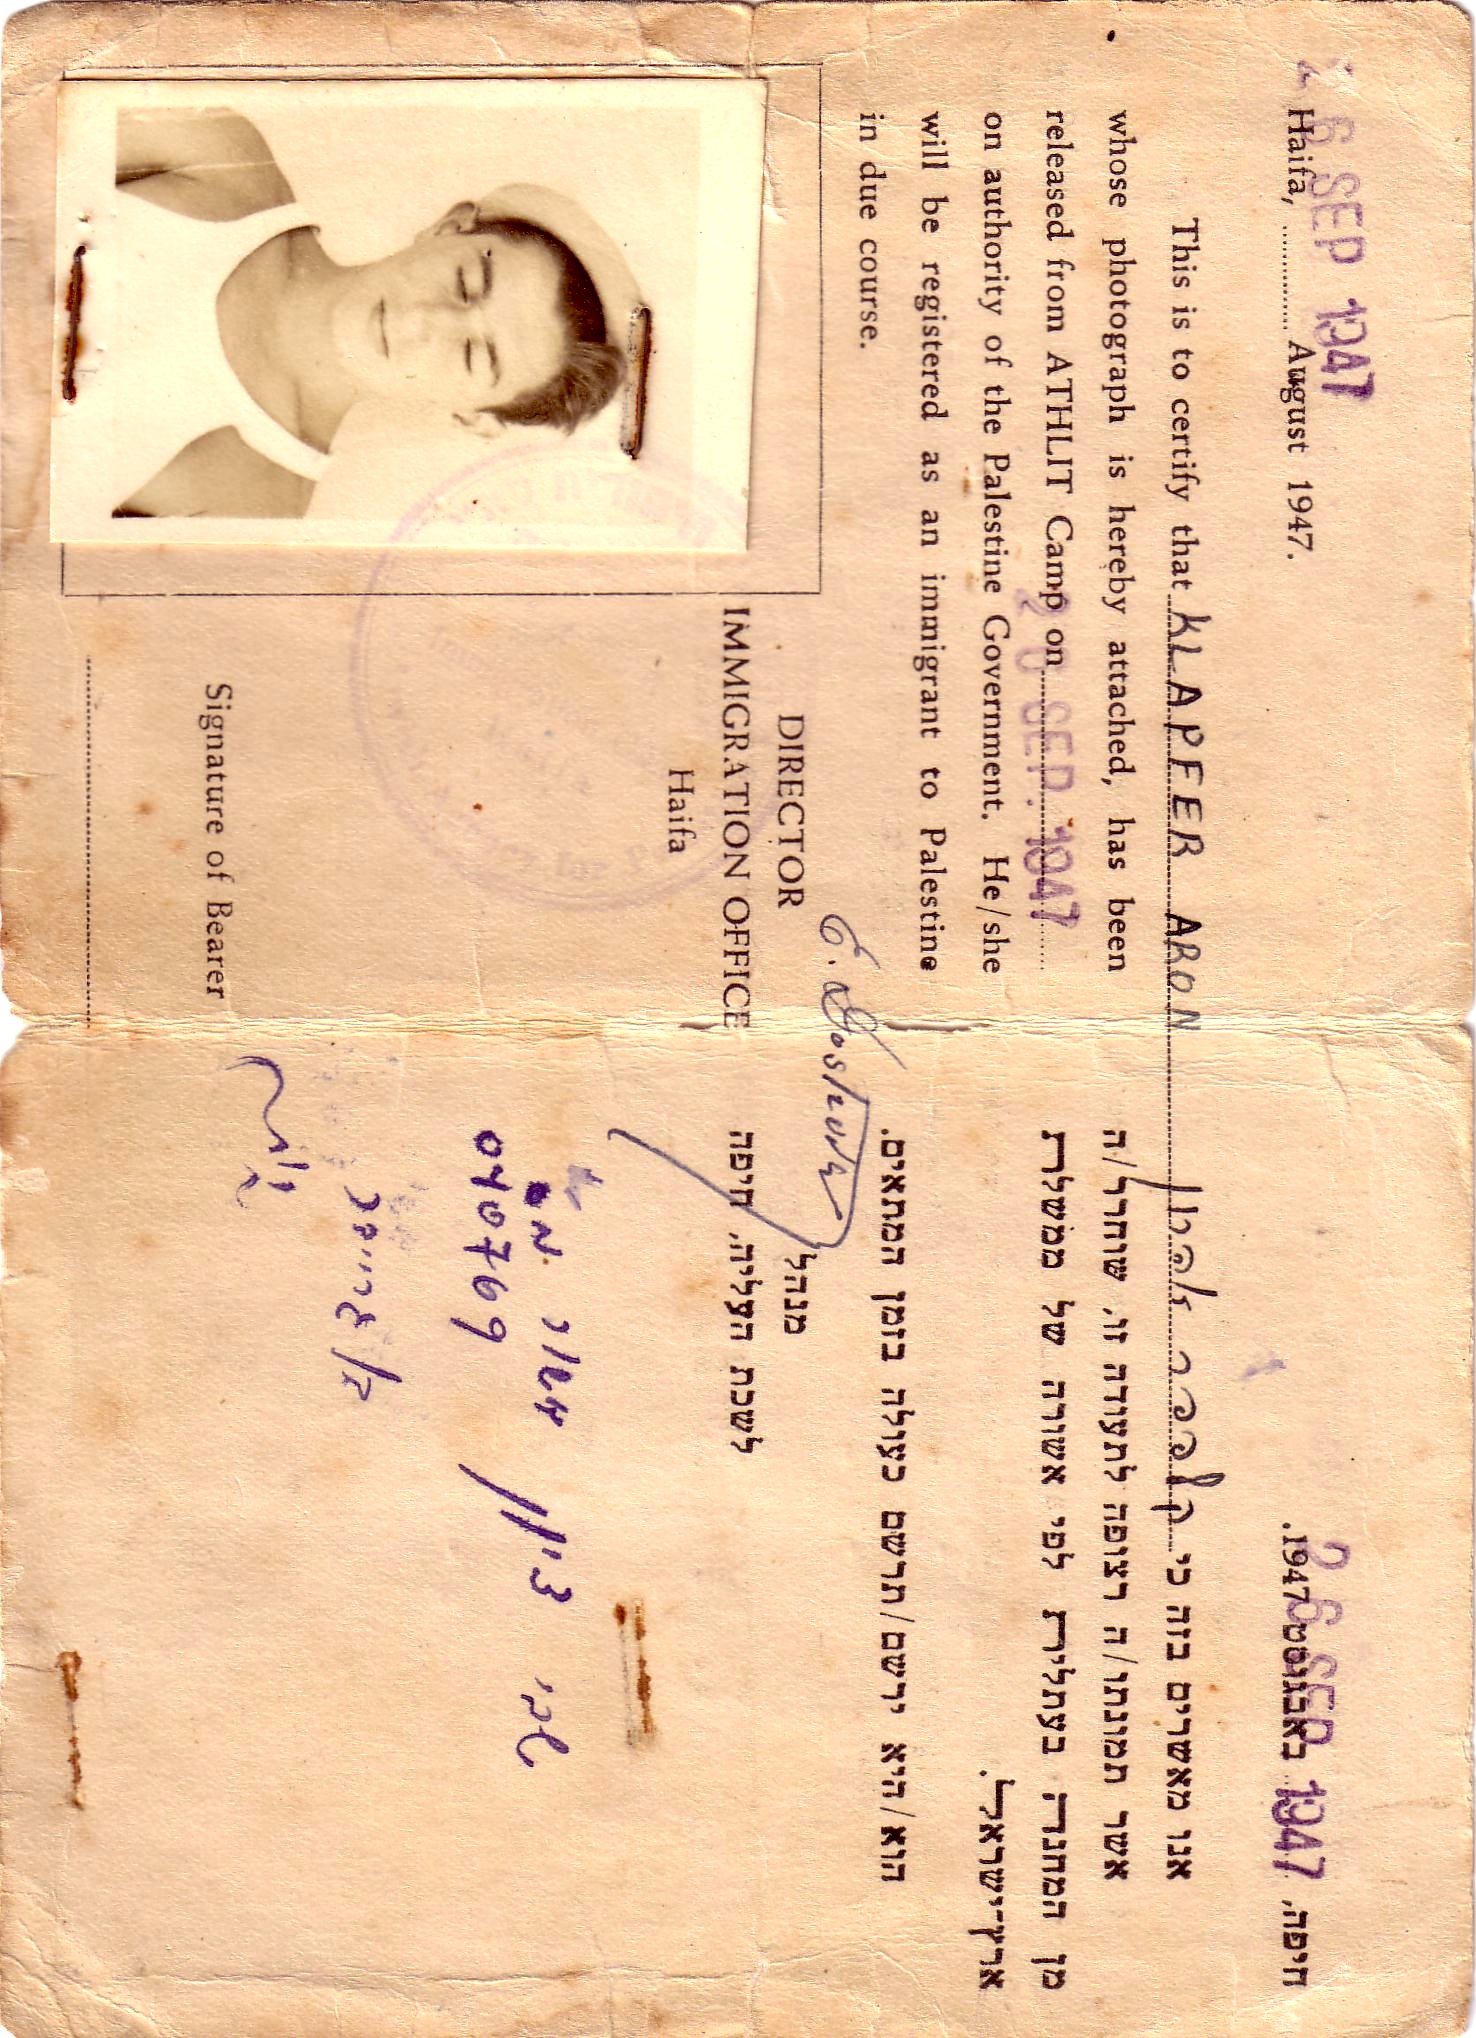 26 SEP 1947
Haifa, ............ August 1947.
This is to certify that KLAPFER ARON
whose photograph is hereby attached, has been
released from ATHLIT Camp on 26 SEP. 1947
on authority of the Palestine Government. He/she
will be registered as an immigrant to Palestine
in due course.
DIRECTOR
IMMIGRATION OFFICE
Haifa
Signature of Bearer
26 SEP 1947
חיפה, באבגוסט 1947.
אנו מאשרים בזה כי קלפפר אהרון
אשר תמונתו/ה רצופה לתעודה זו, שוחרר/ה
מן המחנה בעתלית לפי אשורה של ממשלת
ארץ-ישראל.
הוא/היא ירשם/תרשם כעולה בזמן המתאים.
מנהל
לשכת העליה, חיפה
040769